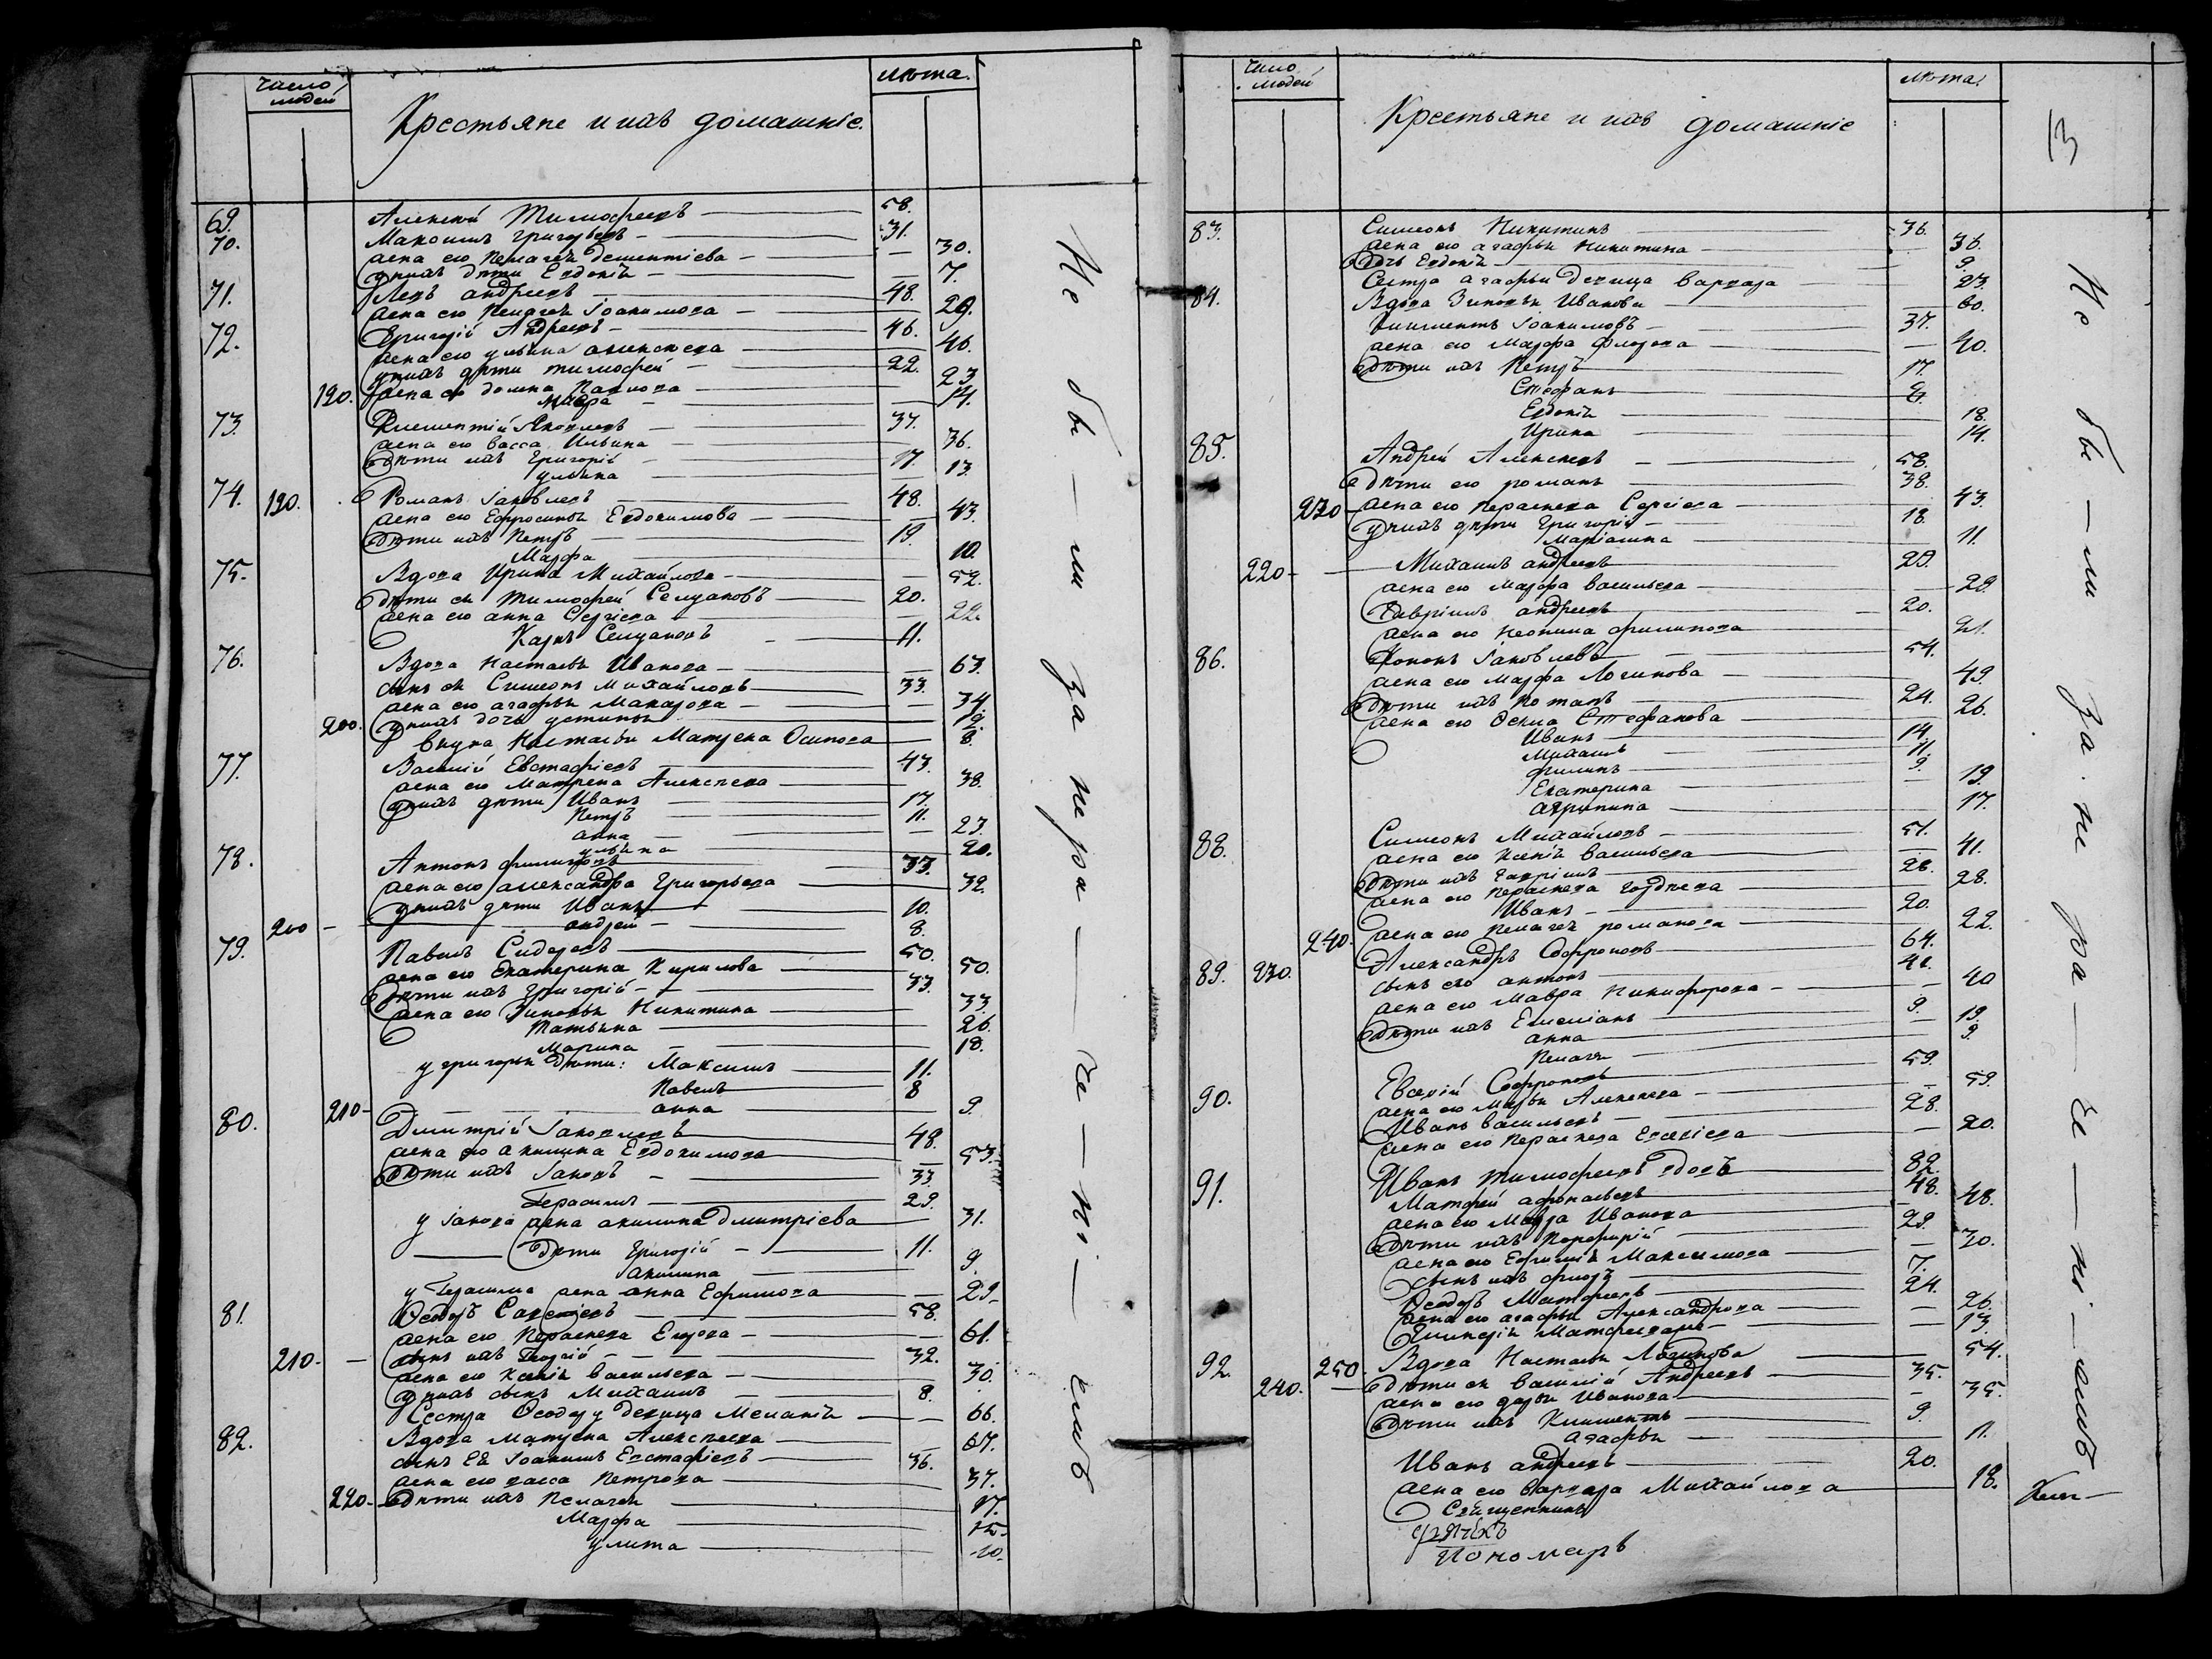 Число людей
Крестьяне и ихъ домашніе.
лѣта.
69. Алексѣй Тимофѣевъ 58.
70. Максимъ Григорьевъ 31.
жена его Пелагея Дементіева 30.
у нихъ дѣти Евдокія 7.
71. Левъ Андреевъ 48.
жена его Пелагея Іоакимова 29.
72. Григорій Андреевъ 46.
жена его Ульяна Алексѣева 46.
у нихъ дѣти Тимофей 22.
жена его Домна Павлова 23
190. Мавра 14.
73. Климентій Яковлевъ 37.
жена его Васса Ильина 36.
дѣти ихъ Григорій 17.
Ульяна 13.
74. 190. Романъ Іаковлевъ 48.
жена его Ефросинья Евдокимова 43.
дѣти ихъ Петръ 19.
Марфа 10.
75. Вдова Ирина Михайлова 52.
дѣти ея Тимофей 20.
жена его Анна Сергіева 22.
Карпъ 11.
76. Вдова Настасья Иванова 63.
сынъ ея Симеонъ Михайловъ 33.
жена его Агафья Макарова 34.
200. у нихъ дочь Устинья 12.
внука Настасьи Матрена Осипова 8.
77. Василій Евстафіевъ 43.
жена его Матрена Алексѣева 38.
у нихъ дѣти Иванъ 17.
Петръ 11.
Анна 23.
Ульяна 20.
78. Антонъ Филиповъ 33.
жена его Александра Григорьева 32.
у нихъ дѣти Иванъ 10.
200 Андрей 8.
79. Павелъ Сидоровъ 50.
жена его Екатерина Кирилова 50.
дѣти ихъ Григорій 33.
жена его Зиновья Никитина 33.
Татьяна 26.
Марина 18.
у Григорья дѣти: Максимъ 11.
Павелъ 8
210 Анна 9.
80. Димитрій Іаковлевъ 48.
жена его Акилина Евдокимова 53.
дѣти ихъ Іаковъ 33.
Герасимъ 29.
у Іакова жена Акилина Дмитріева 31.
дѣти Григорій 11.
Акилина 9.
у Герасима жена Анна Ефимова 29
81. Ѳеодоръ Савельевъ 58.
жена его Параскева Егорова 61.
210. сынъ ихъ Георгій 32.
жена его Ксенія Васильева 30.
у нихъ сынъ Михаилъ 8.
Сестра Ѳеодору девица Меланія 66.
82. Вдова Матрена Алексѣева 67.
сынъ ея Іоакимъ Евстафіевъ 36.
жена его Васса Петрова 37.
220. дѣти ихъ Пелагея 17.
Марфа 15.
Улита 10.
Не бы — ли за не ра — че — ні — емъ
Число людей
Крестьяне и ихъ домашніе
лѣта.
83. Симеонъ Никитинъ 36.
жена его Агафья Никитина 36.
дочь Евдокія 9.
Сестра Агафьи девица Варвара 23.
84. Вдова Зиновья Иванова 60.
Климентъ Іоакимовъ 37.
жена его Марфа Флорова 40.
дѣти ихъ Петръ 17.
Стефанъ 6.
Евдокія 18.
Ирина 14.
85. Андрей Алексѣевъ 58.
дѣти его Романъ 38.
230 жена его Параскева Сергіева 43.
у нихъ дѣти Григорій 18.
Маріамна 11.
220 Михаилъ Андреевъ 29.
жена его Марфа Васильева 29.
Гавріилъ Андреевъ 20.
жена его Неонила Филипова 21.
86. Кононъ Іаковлевъ 54.
жена его Марфа Логинова 49.
дѣти ихъ Потапъ 24.
жена его Ѳекла Стефанова 26.
Иванъ 14.
Михаилъ 11.
Филипъ 9.
Екатерина 19.
Агрипина 17.
88. Симеонъ Михайловъ 51.
жена его Ксенія Васильева 41.
дѣти ихъ Гавріилъ 28.
жена его Параскева Гордѣева 28.
Иванъ 20.
240. жена его Пелагея Романова 22.
89. 230. Александръ Софроновъ 64.
сынъ его Антонъ 42.
жена его Мавра Никифорова 40
дѣти ихъ Емеліанъ 9.
Анна 19.
Пелагея 9.
90. Евсевій Софроновъ 59.
жена его Марья Алексѣева 59.
Иванъ Васильевъ 28.
жена его Параскева Евсевіева 20.
91. Иванъ Тимофеевъ вдовъ 82.
Матфей Афонасьевъ 48.
жена его Мавра Иванова 48.
дѣти ихъ Порфирій 29.
жена его Ефимія Максимова 30.
сынъ ихъ Флоръ 7.
Ѳеодоръ Матфеевъ 24.
жена его Агафья Александрова 26.
Гликерія Матфеева 13.
92. 250 Вдова Настасья Логинова 54.
240. дѣти ея Василій Андреевъ 35.
жена его Дарья Иванова 35.
дѣти ихъ Климентъ 9.
Агафья 11.
Иванъ Андреевъ 20.
жена его Варвара Михайлова 18.
Священникъ
Дьячекъ
Пономарь
Не бы — ли за не ра — че — ні — емъ